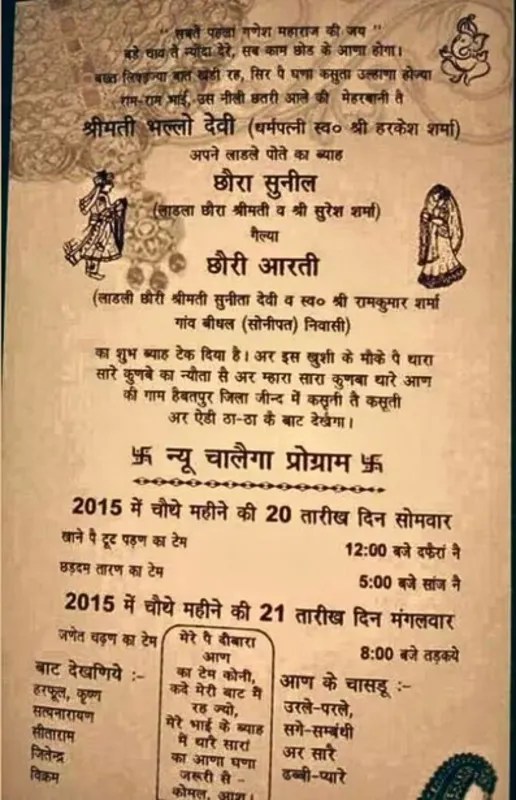 “ सबतै पहला गणेश महाराज की जय ”
बड़े चाव तै न्यौदा देरे, सब काम छोड के आणा होगा।
बख्त लिकड़ज्या बात खड़ी रह, सिर पै घणा कसुता उल्हाणा होज्या
राम-राम भाई, उस नीली छतरी आले की मेहरबानी तै
श्रीमती भल्लो देवी (धर्मपत्नी स्व० श्री हरकेश शर्मा)
अपने लाडले पोते का ब्याह
छौरा सुनील
(लाडला छौरा श्रीमती व श्री सुरेश शर्मा)
गैल्या
छौरी आरती
(लाडली छौरी श्रीमती सुनीता देवी व स्व० श्री रामकुमार शर्मा
गांव बीधल (सोनीपत) निवासी)
का शुभ ब्याह टेक दिया है। अर इस खुशी के मौके पै थारा
सारे कुणबे का न्यौता सै अर म्हारा सारा कुणबा थारे आण
की गाम हैबतपुर जिला जीन्द में कसूती तै कसूती
अर ऐडी ठा-ठा कै बाट देखैगा।
卐 न्यू चालैगा प्रोग्राम 卐
2015 में चौथे महीने की 20 तारीख दिन सोमवार
खाने पै टूट पड़ण का टेम 12:00 बजे दफैरां नै
छड़दम तारण का टेम 5:00 बजे सांज नै
2015 में चौथे महीने की 21 तारीख दिन मंगलवार
जणेत चढ़ण का टेम 8:00 बजे तड़कये
बाट देखणिये :-
हरफूल, कृष्ण
सत्यनारायण
सीताराम
जितेन्द्र
विक्रम
मेरे पै दीबारा
आण
का टेम कोनी,
कदे मेरी बाट में
रह ज्यो,
मेरे भाई के ब्याह
में थारै सारां
का आणा घणा
जरूरी सै -
कोमल, आशु।
आण के चासडू :-
उरले-परले,
सगे-सम्बंधी
अर सारै
ढब्बी-प्यारे